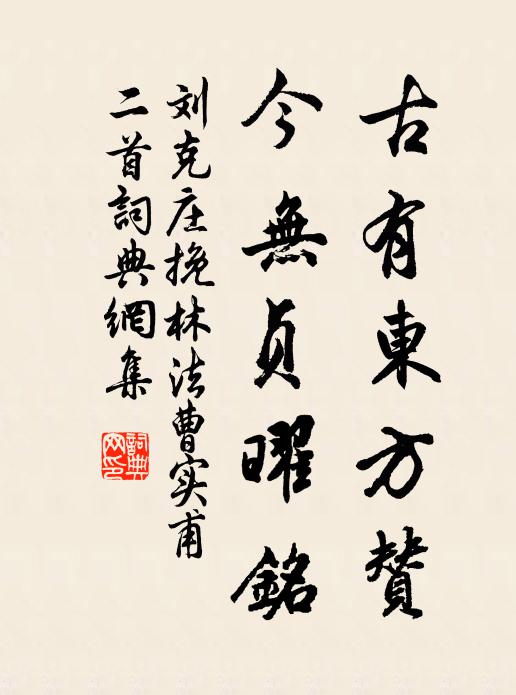 古有東方赞
今無貞曜銘
刘克庄挽林法曹实甫
二首詞典網集
詞典网印